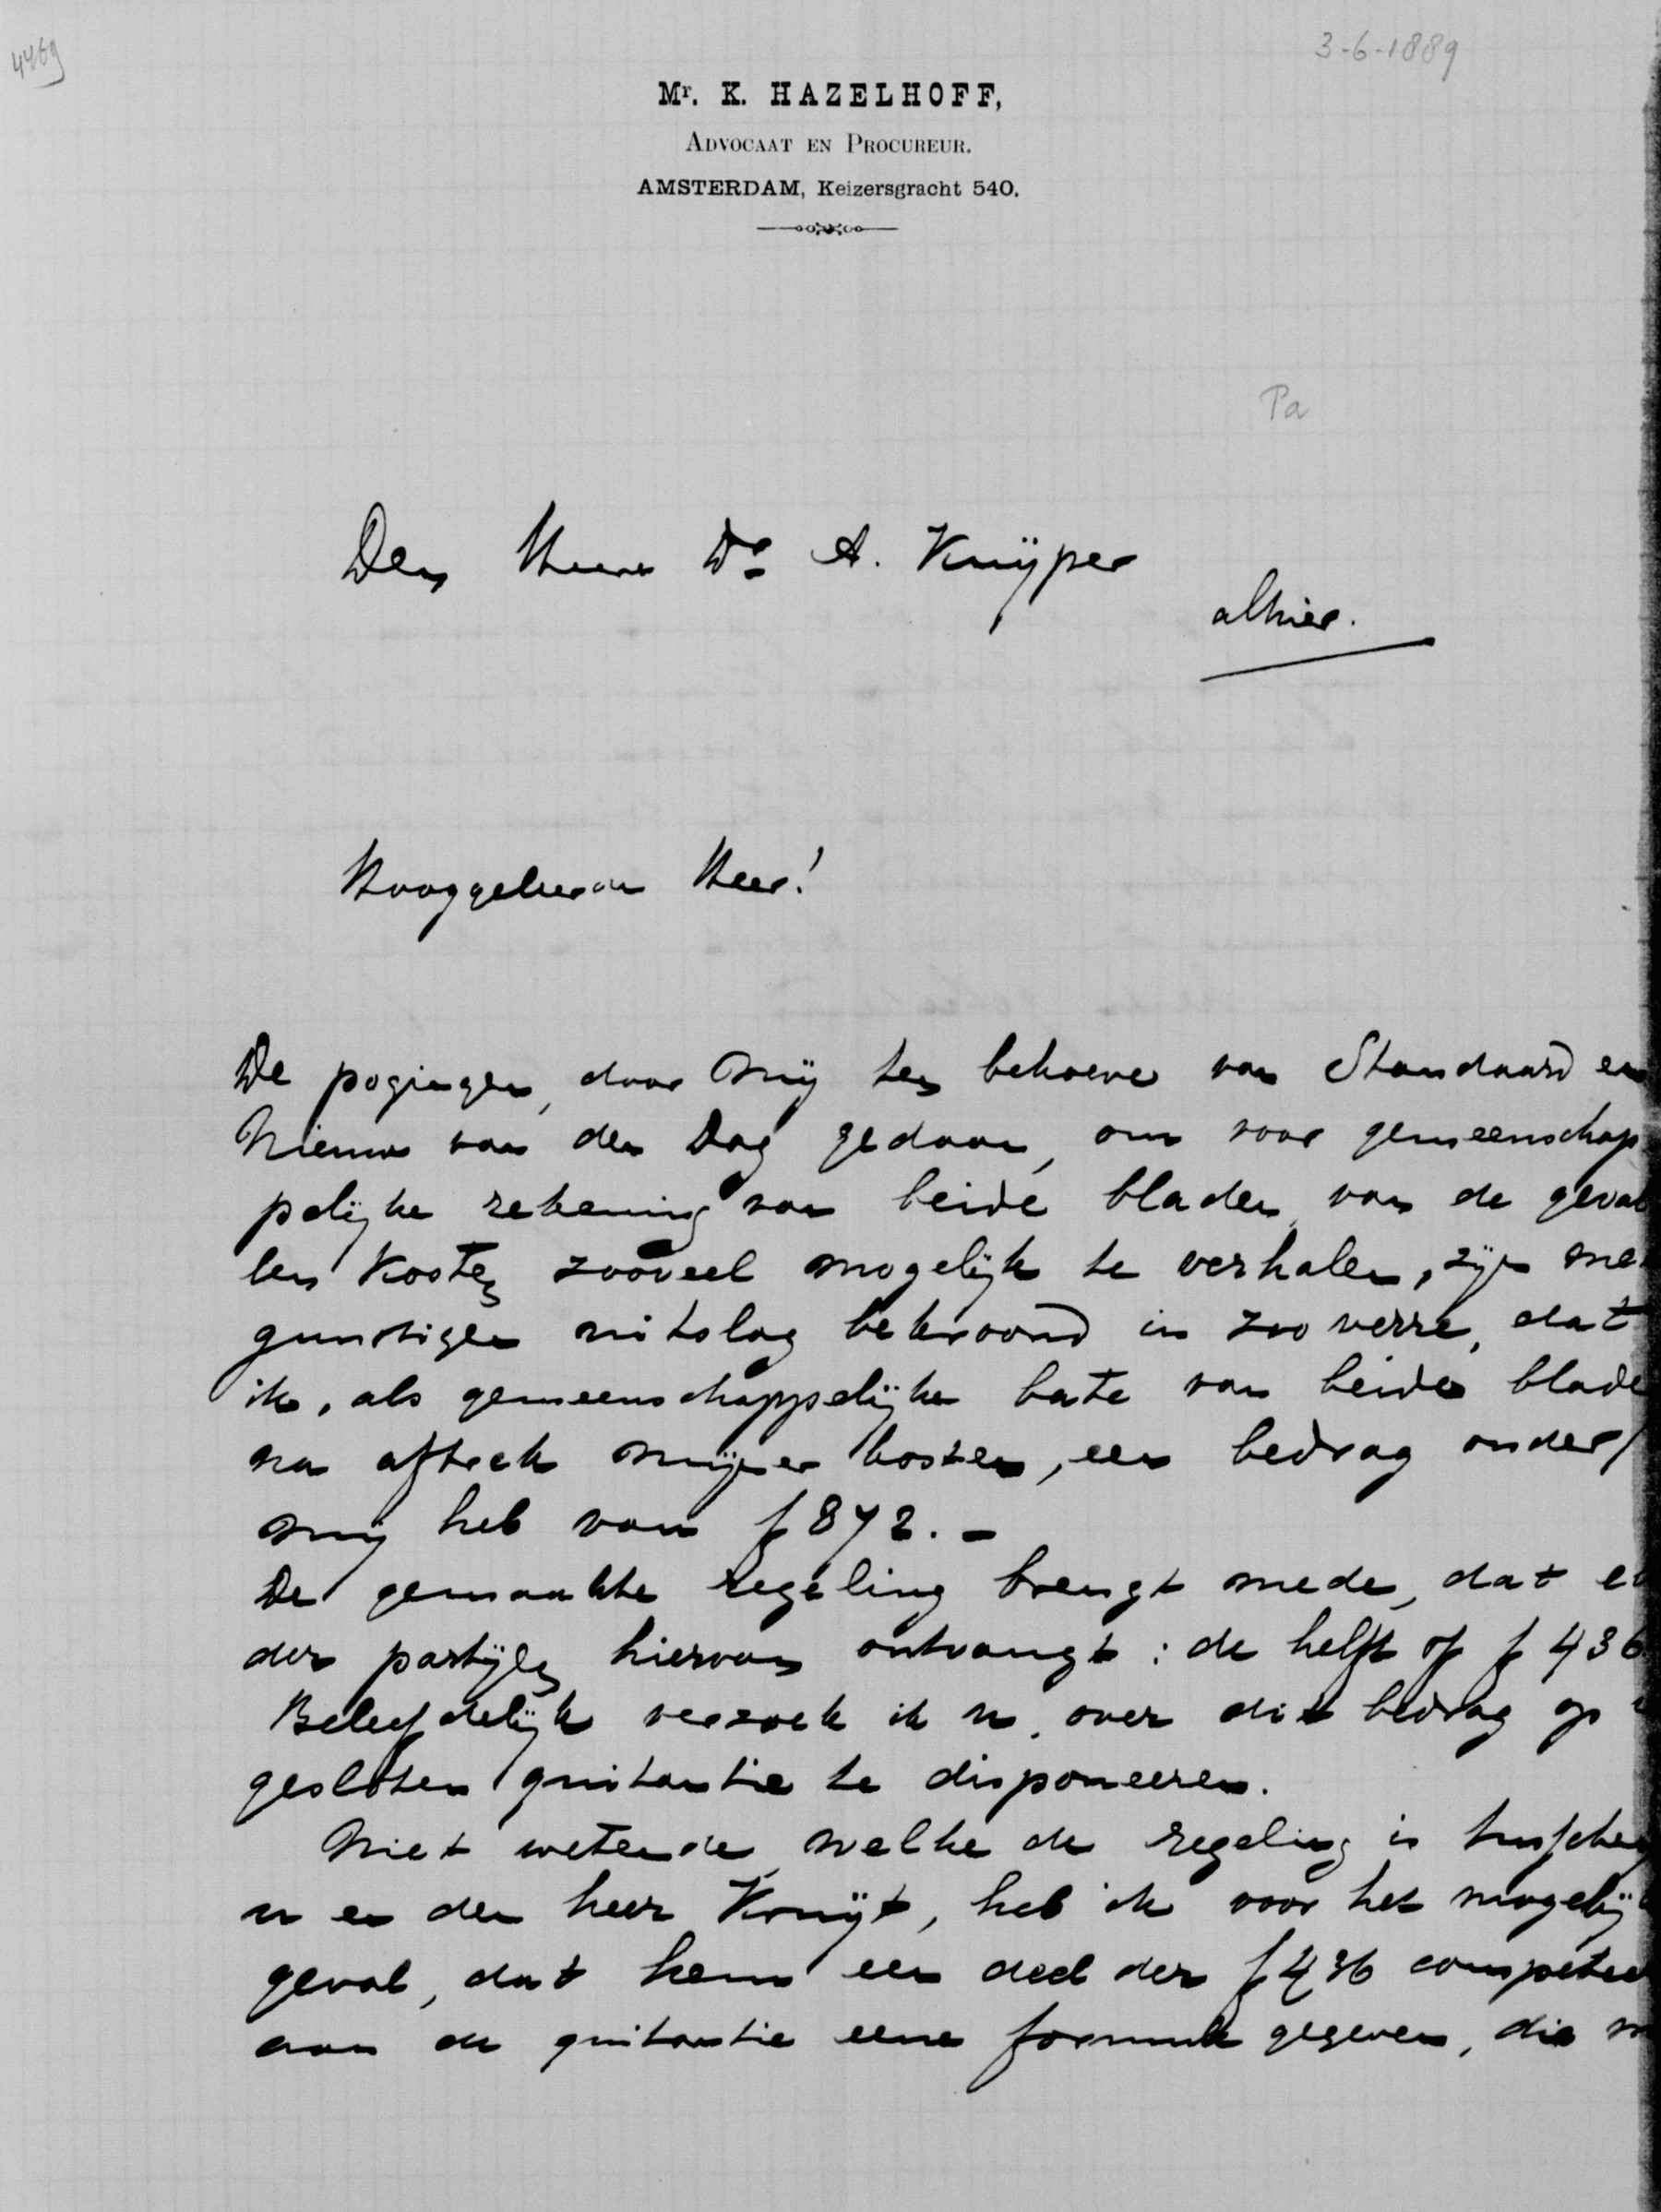 4469
3-6-1889
Mr. K. HAZELHOFF,
ADVOCAAT EN PROCUREUR.
AMSTERDAM, Keizersgracht 540.
Pa
Den Heere Dr A. Kuÿper
alhier.
Hooggeleerde Heer!
De pogingen, door mÿ ten behoeve van Standaard en
Nieuws van den Dag gedaan, om voor gemeenschap
pelÿke rekening van beide bladen, van de geval
len kosten zooveel mogelÿk te verhalen, zÿn me
gunstigen uitslag bekroond in zooverre, dat
ik, als gemeenschappelÿke bate van beide blade
na aftrek mÿner kosten, een bedrag onder
mÿ heb van f 872.-
De gemaakte regeling brengt mede, dat
der partÿen hiervan ontvangt: de helft of f 436
Beleefdelÿk verzoek ik u, over dit bedrag op
gesloten quitantie te disponeeren.
Niet wetende, welke de regeling is tusschen
u en den heer Kruÿt, heb ik voor het mogelÿ
geval, dat hem een deel der f 436 competee
aan de quitantie eene formule gegeven, die